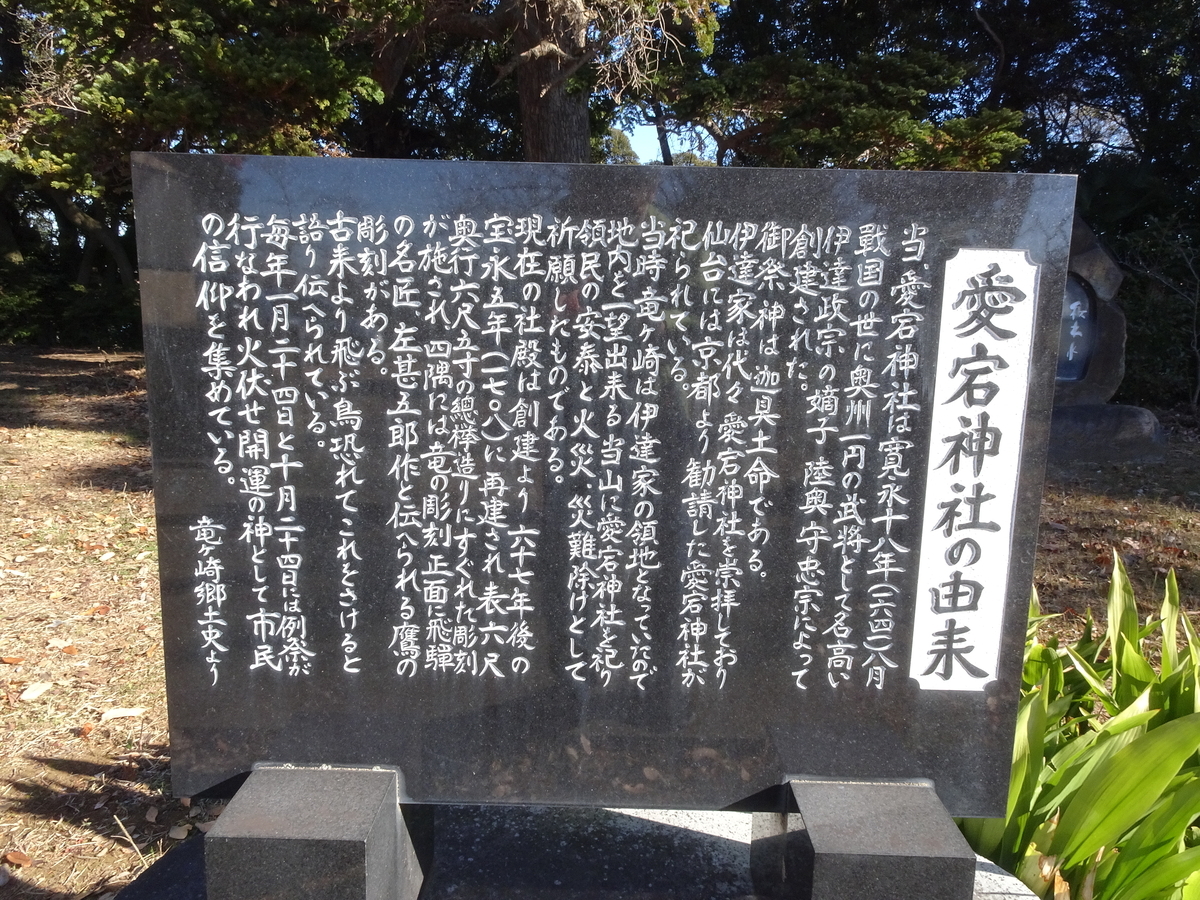 愛宕神社の由来
当、愛宕神社は寛永十八年(一六四一)八月
戦国の世に奥州一円の武将として名高い
伊達政宗の嫡子 陸奥守忠宗によって
創建された。
御祭神は迦具土命である。
伊達家は代々愛宕神社を崇拝しており
仙台には京都より勧請した愛宕神社が
祀られている。
当時竜ヶ崎は伊達家の領地となっていたので
地内を一望出来る当山に愛宕神社を祀り
領民の安泰と火災、災難除けとして
祈願したものである。
現在の社殿は創建より六十七年後の
宝永五年(一七〇八)に再建され表六尺
奥行六尺五寸の總欅造りにすぐれた彫刻
が施され、四隅には竜の彫刻正面に飛騨
の名匠、左甚五郎作と伝へられる鷹の
彫刻がある。
古来より飛ぶ鳥恐れてこれをさけると
語り伝へられている。
毎年一月二十四日と十月二十四日には例祭が
行なわれ火伏せ開運の神として市民
の信仰を集めている。
竜ヶ崎郷土史より